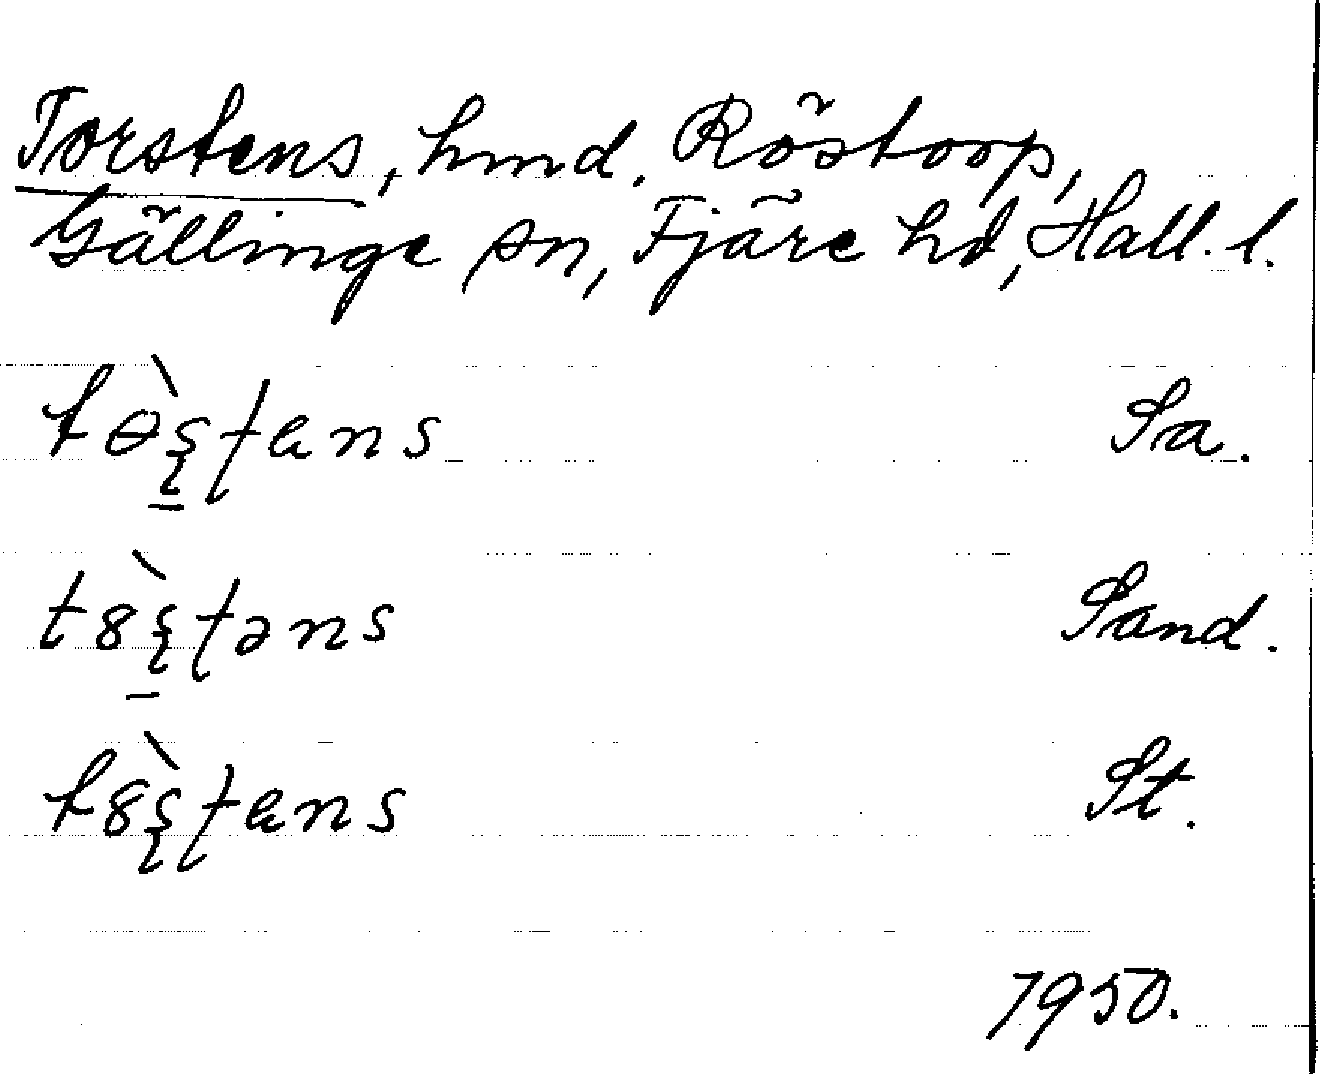 Torstens, hmd. Röstorp,
Gällinge sn, Fjäre hd, Hall. l.
tɵ̀ʂʈans Sa.
t8̀ʂʈəns Sand.
t8̀ʂʈans St.
1950.